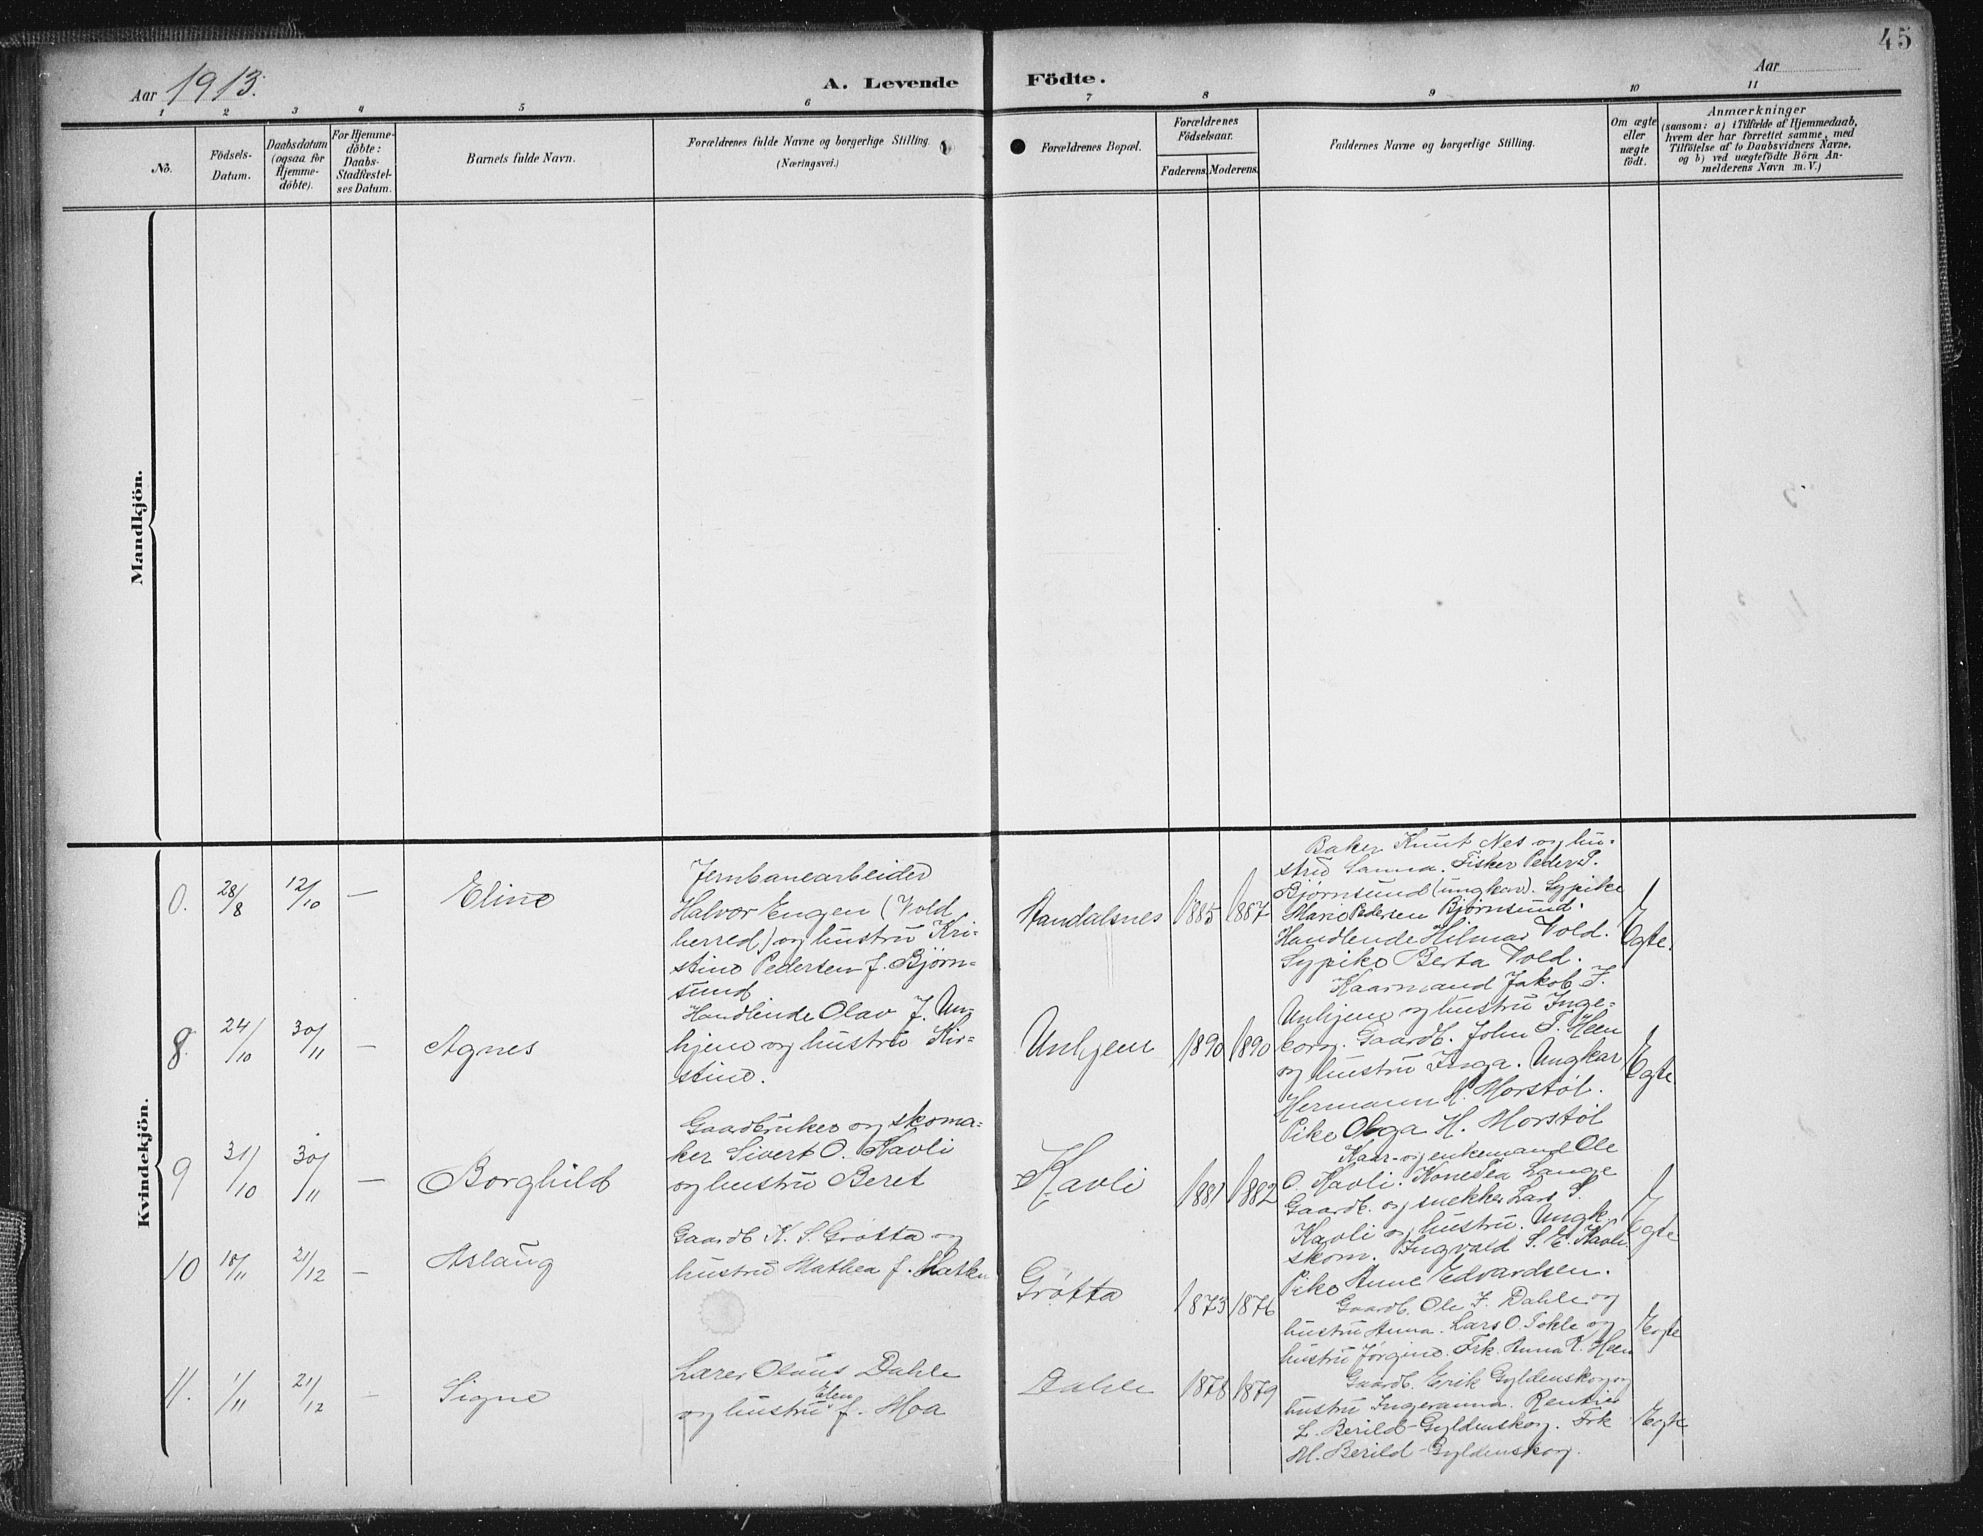 45
Aar 1913.
A. Levende Födte.
Aar
1 2 3 4 5 6 7 8 9 10 11
No.
Födsels-
Datum.
Daabsdatum
(ogsaa for
Hjemme-
döbte).
For Hjemme-
döbte:
Daabs-
Stadfæstel-
ses Datum.
Barnets fulde Navn.
Forældrenes fulde Navne og borgerlige Stilling.
(Næringsvei.)
Forældrenes Bopæl.
Forældrenes
Födselsaar.
Faderens. Moderens.
Faddernes Navne og borgerlige Stilling.
Om ægte
eller
uægte
födt.
Anmærkninger
(saasom: a) i Tilfælde af Hjemmedaab,
hvem der har forrettet samme, med
Tilföielse af to Daabsvidners Navne,
og b) ved uægtefödte Börn An-
melderens Navn m. V.)
Mandkjön.
Kvindekjön.
0. 28/8 12/10 — Eline
Jernbanearbeider
Halvor Engen (Vold
herred) og hustru Kri-
stine Pedersen f. Bjørn-
sund
Aandalsnes 1885 1887
Baker Knut Nes og hu-
stru Sanna. Fisker Peder P.
Bjørnsund (ungkar). Sypike
Marie Pedersen Bjørnsund.
Handlende Hilmar Vold.
Sypike Berta Vold.
Egte.
8. 24/10 30/11 — Agnes
Handlende Olav J. Un-
hjem og hustru Kir-
stine.
Unhjem 1890 1890
Kaarmand Jakob J.
Unhjem og hustru Inge-
borg. Gaardb. John T. Heen
og hustru Inga. Ungkar
Hermann H. Morstøl.
Pike Olga H. Morstøl
Egte
9 31/10 30/11 — Borghild
Gaardbruker og skoma-
ker Sivert O. Kavli
og hustru Beret
Kavli 1881 1882
Kaar- og enkemand Ole
O. Kavli. Kone Lange
Gaardb. og snekker Lars S.
Kavli og hustru. Ungk.
skom. Ingvald S. E. Kavli.
Pike Anne Edvardsen.
Egte
10 18/11 21/12 — Aslaug
Gaardb K. S. Grøtta og
hustru Mathea f.
Grøtta 1873 1876
Gaardb. Ole J. Dahle og
hustru Anna. Lars O. Sokle og
hustru Jørgine. Frk. Anna Heen
Egte
11. 1/11 21/12 — Signe
Lærer Olaus Dahle
og hustru Elen f. Moa
Dahle 1878 1879
Gaardb. Erik Gyldenskog og
hustru Ingeranna. Rentier
L. Berild-Gyldenskog. Frk
M. Berild-Gyldenskog.
Egte